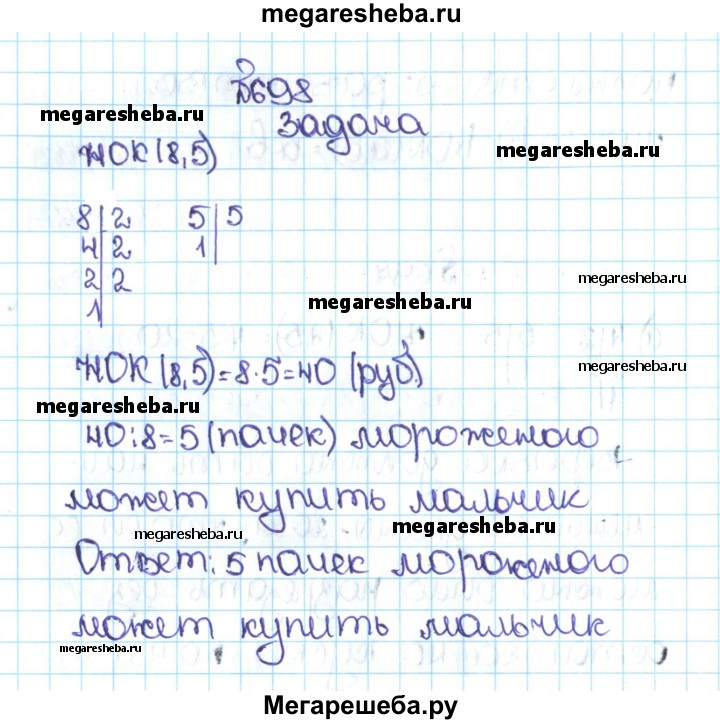 megaresheba.ru
№698
megaresheba.ru
Задача
НОК(8,5)
megaresheba.ru
8|2 5|5
4|2 1|
2|2
megaresheba.ru
1|
megaresheba.ru
НОК(8,5)=8·5=40 (руб.)
megaresheba.ru
megaresheba.ru
40:8=5 (пачек) мороженого
может купить мальчик
megaresheba.ru
megaresheba.ru
Ответ: 5 пачек мороженого
может купить мальчик
megaresheba.ru
Мегарешеба.ру